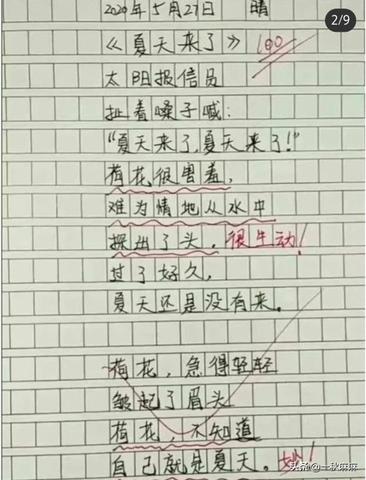 2/9
2020年5月27日 晴
《夏天来了》 100
太阳报信员
扯着嗓子喊:
"夏天来了,夏天来了!"
荷花很害羞,
难为情地从水中
探出了头。很生动!
过了好久,
夏天还是没有来。
荷花,急得轻轻
皱起了眉头
荷花,不知道
自己就是夏天。妙!
头条@一秋麻麻